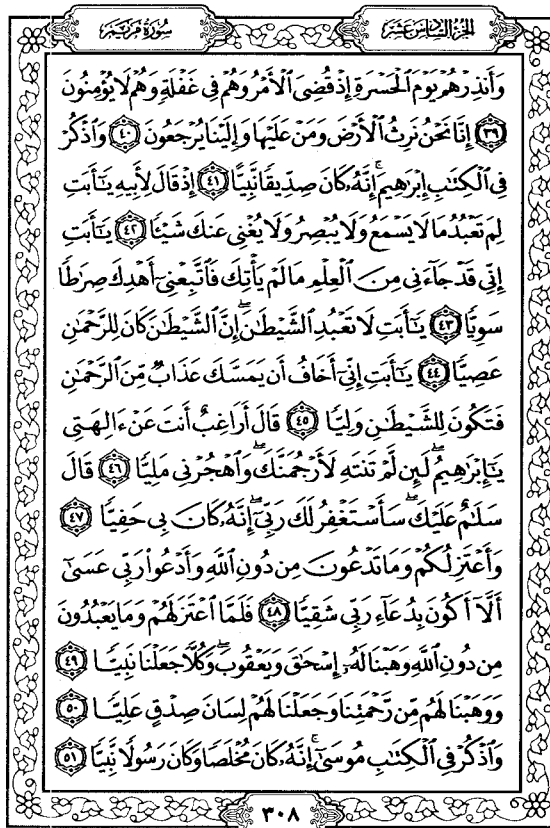 الجزء السادس عشر
سورة مريم
وَأَنذِرْهُمْ يَوْمَ ٱلْحَسْرَةِ إِذْ قُضِىَ ٱلْأَمْرُ وَهُمْ فِى غَفْلَةٍ وَهُمْ لَا يُؤْمِنُونَ
٣٩ إِنَّا نَحْنُ نَرِثُ ٱلْأَرْضَ وَمَنْ عَلَيْهَا وَإِلَيْنَا يُرْجَعُونَ ٤٠ وَٱذْكُرْ
فِى ٱلْكِتَٰبِ إِبْرَٰهِيمَ ۚ إِنَّهُۥ كَانَ صِدِّيقًا نَّبِيًّا ٤١ إِذْ قَالَ لِأَبِيهِ يَٰٓأَبَتِ
لِمَ تَعْبُدُ مَا لَا يَسْمَعُ وَلَا يُبْصِرُ وَلَا يُغْنِى عَنكَ شَيْـًٔا ٤٢ يَٰٓأَبَتِ
إِنِّى قَدْ جَآءَنِى مِنَ ٱلْعِلْمِ مَا لَمْ يَأْتِكَ فَٱتَّبِعْنِىٓ أَهْدِكَ صِرَٰطًا
سَوِيًّا ٤٣ يَٰٓأَبَتِ لَا تَعْبُدِ ٱلشَّيْطَٰنَ ۖ إِنَّ ٱلشَّيْطَٰنَ كَانَ لِلرَّحْمَٰنِ
عَصِيًّا ٤٤ يَٰٓأَبَتِ إِنِّىٓ أَخَافُ أَن يَمَسَّكَ عَذَابٌ مِّنَ ٱلرَّحْمَٰنِ
فَتَكُونَ لِلشَّيْطَٰنِ وَلِيًّا ٤٥ قَالَ أَرَاغِبٌ أَنتَ عَنْ ءَالِهَتِى
يَٰٓإِبْرَٰهِيمُ ۖ لَئِن لَّمْ تَنتَهِ لَأَرْجُمَنَّكَ ۖ وَٱهْجُرْنِى مَلِيًّا ٤٦ قَالَ
سَلَٰمٌ عَلَيْكَ ۖ سَأَسْتَغْفِرُ لَكَ رَبِّىٓ ۖ إِنَّهُۥ كَانَ بِى حَفِيًّا ٤٧
وَأَعْتَزِلُكُمْ وَمَا تَدْعُونَ مِن دُونِ ٱللَّهِ وَأَدْعُوا۟ رَبِّى عَسَىٰٓ
أَلَّآ أَكُونَ بِدُعَآءِ رَبِّى شَقِيًّا ٤٨ فَلَمَّا ٱعْتَزَلَهُمْ وَمَا يَعْبُدُونَ
مِن دُونِ ٱللَّهِ وَهَبْنَا لَهُۥٓ إِسْحَٰقَ وَيَعْقُوبَ ۖ وَكُلًّا جَعَلْنَا نَبِيًّا ٤٩
وَوَهَبْنَا لَهُم مِّن رَّحْمَتِنَا وَجَعَلْنَا لَهُمْ لِسَانَ صِدْقٍ عَلِيًّا ٥٠
وَٱذْكُرْ فِى ٱلْكِتَٰبِ مُوسَىٰٓ ۚ إِنَّهُۥ كَانَ مُخْلَصًا وَكَانَ رَسُولًا نَّبِيًّا ٥١
٣٠٨